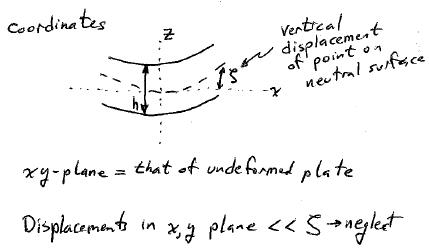 coordinates
z
vertical
displacement
of point on
neutral surface
ζ
x
h
xy-plane = that of undeformed plate
Displacements in x,y plane << ζ → neglect